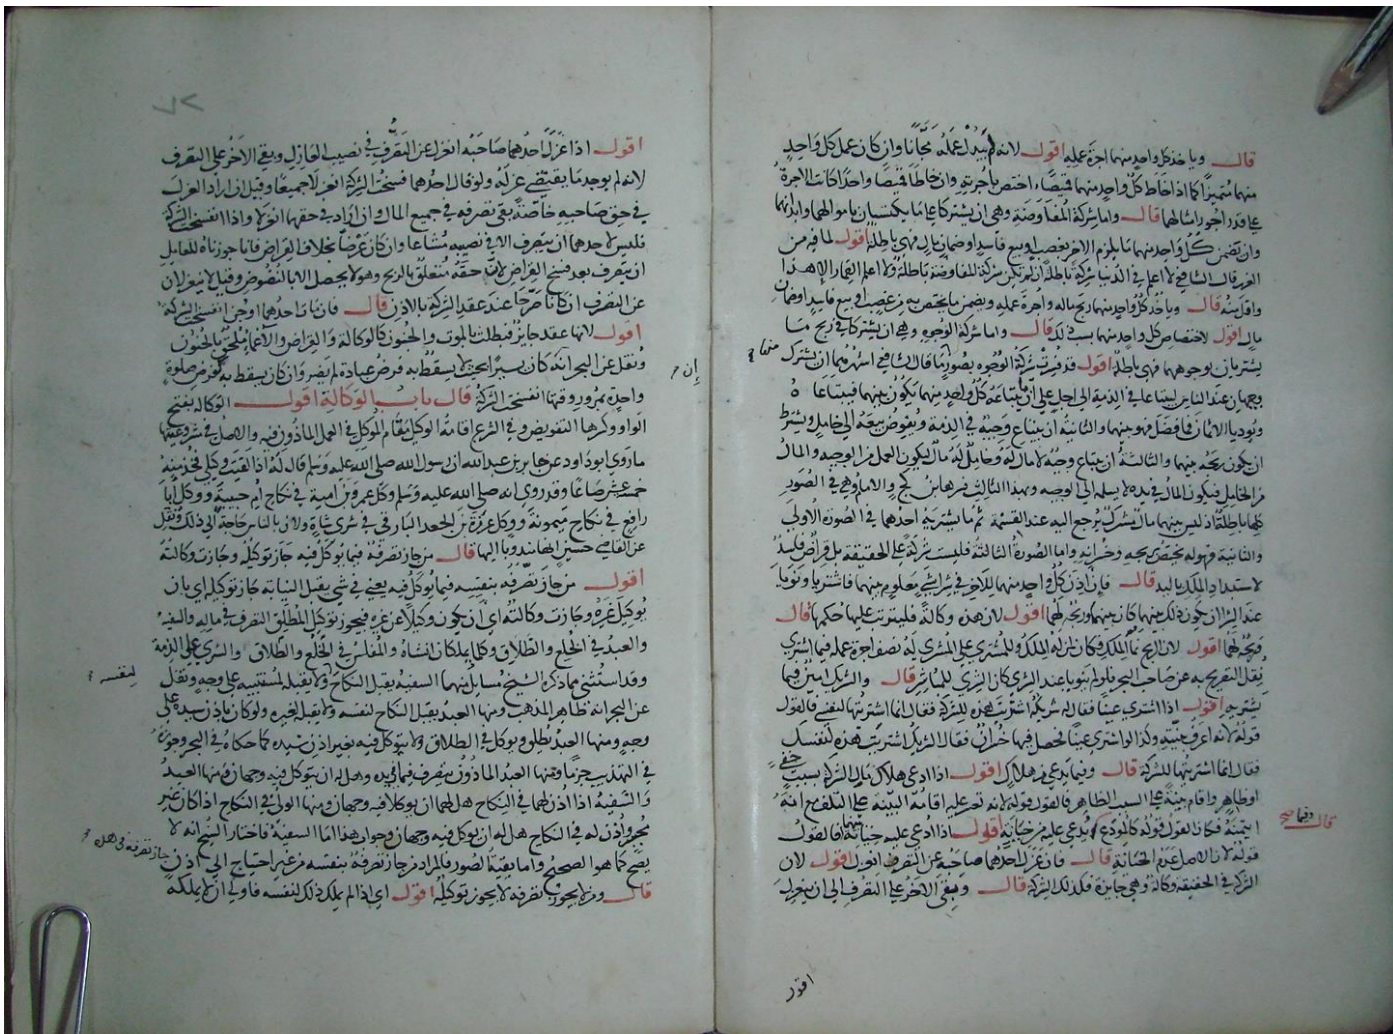 قال ويأخذ كل واحد منهما اجرة عمله اقول لانه لم يبذل عمله مجانا وان كان عمل كل واحد
منهما متميزا كما اذا خاط كل واحد منهما قميصا اختص باجرته وان خاطا قميصا واحدا كانت الاجرة
على قدر اجور امثالهما قال واما شركة المفاوضة وهي ان يشتركا على ما يكتسبان باموالهما وابدانهما
وان يضمن كل واحد منهما ما يلزم الاخر بغصب او بيع فاسد او ضمان مال فهي باطلة اقول لما فيه من
الغرر قال الشافعي لا اعلم في الدنيا شركة باطلة ان لم تكن شركة المفاوضة باطلة ولا اعلم القمار الا هذا
واقل منه قال ويأخذ كل واحد منهما ربح ماله واجرة عمله ويضمن ما يختص به من غصب او بيع فاسد او ضمان
مال اقول لاختصاص كل واحد منهما بسبب ذلك قال واما شركة الوجوه وهي ان يشتركا في ربح ما
يشتريان بوجوههما فهي باطلة اقول قد فسرت شركة الوجوه بصور منها قال الشافعي اشهرهما ان يشترك
منهما
وجيهان عند الناس ليبتاعا في الذمة الى اجل على ان ما يبتاعه كل واحد منهما يكون بينهما فيبتاعا
ويوديا الاثمان فما فضل فهو بينهما والثانية ان يبتاع وجيه في الذمة ويفوض بيعه الى خامل ويشترط
ان يكون ربحه بينهما والثالثة ان يبتاع وجيه لا مال له وخامل له مال ليكون العمل من الوجيه والمال
من الخامل فيكون المال في يده لا يسلمه الى الوجيه وبهذا الثالث فسرها ابن كج والامام وهي في الصور
كلها باطلة اذ ليس بينهما مال مشترك يرجع اليه عند القسمة ثم ما يشتريه احدهما في الصورة الاولى
والثانية فهو له يختص بربحه وخسرانه واما الصورة الثالثة فليست شركة على الحقيقة بل قراض فاسد
لاستبداد المالك باليد قال فان اذن كل واحد منهما للاخر في شراء شي معلوم بينهما فاشتريا ونويا
عند الشرا ان يكون ذلك بينهما كان بينهما وربحه لهما اقول لان هذه وكالة فليترتب عليها حكمها قال
وربحه لهما اقول لان الربح نماء الملك فكان لمن له الملك وللمشتري على المشتري له نصف اجرة عمله فيما اشتري
نقل التصريح به عن صاحب البحر فلو لم ينويا عند الشرى كان الشرى للمباشر قال والشريك امين فيما
يشتريه اقول اذا اشترى عينا فقال له شريكه اشتريت هذه للشركة فقال انما اشتريتها لنفسي فالقول
قوله لانه اعرف بنيته وكذا لو اشترى عينا فحصل فيها خسران فقال الشريك اشتريت هذه لنفسك
فقال انما اشتريتها للشركة قال وفيما يدعي من هلاك اقول اذا ادعى هلاك مال الشركة بسبب خفي
او ظاهر واقام بينة على السبب الظاهر فالقول قوله لانه تعسر عليه اقامة البينة على التلف مع انه
قال وفيما صح
ايتمنه فكان القول قوله كالمودع يدعى عليه من خيانة اقول اذا ادعى عليه خيانة فالقول
قوله لان الاصل عدم الخيانة قال فان عزل احدهما صاحبه عن التصرف انعزل اقول لان
الشركة في الحقيقة وكالة وهي جايزة فكذلك الشركة قال ويبقى الاخر على التصرف الى ان ينعزل
اقول
اقول اذا عزل احدهما صاحبه انعزل عن التصرف في نصيب العازل وبقي الاخر على التصرف
لانه لم يوجد ما يقتضي عزله ولو قال احدهما فسخت الشركة انعزلا جميعا وقيل ان اراد العزل
في حق صاحبه خاصة بقي تصرفه في جميع المال وان اراد في حقهما انعزلا واذا انفسخت الشركة
فليس لاحدهما ان يتصرف الا في نصيبه مشاعا وان كان عرضا بخلاف القراض فانا جوزناه للعامل
ان يتصرف بعد فسخ القراض لان حقه متعلق بالربح وهو لا يحصل الا بالنضوض وقيل لا ينعزلان
عن التصرف ان كانا صرحا عند عقد الشركة بالاذن قال فان مات احدهما او جن انفسخت الشركة
اقول لانها عقد جايز فبطلت بالموت والجنون كالوكالة والقراض والاغماء ملحق بالجنون
ونقل عن البحر انه كان يسيرا بحيث لا يسقط به فرض عبادة لم يضر وان كان يسقط به فرض صلوة
إن
واحدة بمرور وقتها انفسخت الشركة قال باب الوكالة اقول الوكالة بفتح
الواو وكسرها التفويض وفي الشرع اقامة الوكيل مقام الموكل في العمل الماذون فيه والاصل في مشروعيتها
ما روى ابو داود عن جابر بن عبد الله ان رسول الله صلى الله عليه وسلم قال له اذا لقيت وكيلي فخذ منه
خمسة عشر صاعا وقد روي انه صلى الله عليه وسلم وكل عمرو بن امية في نكاح ام حبيبة ووكل ابا
رافع في نكاح ميمونة ووكل عروة بن الجعد البارقي في شرى شاة ولان بالناس حاجة الى ذلك ونقل
عن القاضي حسين ايضا مندوبا اليها قال من جاز تصرفه فيما يوكل فيه جاز توكيله وجازت وكالته
اقول من جاز تصرفه بنفسه فيما يوكل فيه يعني في شي يقبل النيابة جاز توكيله اي بان
يوكل غيره وجازت وكالته اي ان يكون وكيلا عن غيره فيجوز توكيل المطلق التصرف في ماله والسفيه
والعبد في الخلع والطلاق وكلما يملكان انشاه والمفلس في الخلع والطلاق والشرى على الذمة
وقد استثنى مما ذكره الشيخ مسايل منها السفيه يقبل النكاح ولا يقبله لمستنيبه على وجه ونقل
لنفسه
عن البحر انه ظاهر المذهب ومنها العبد يقبل النكاح لنفسه ولا يقبل لغيره ولو كان باذن سيده على
وجه ومنها العبد يطلق ويوكل في الطلاق ولا يتوكل فيه بغير اذن سيده كما حكاه في البحر وجوزه
في التهذيب جزما ومنها العبد الماذون يتصرف فيما في يده وهل له ان يتوكل فيه وجهان ومنها العبد
والسفيه اذا اذن لهما في النكاح هل لهما ان يوكلا فيه وجهان ومنها الولي في النكاح اذا كان غير
مجبر واذن له في النكاح هل له ان يوكل فيه وجهان وجواب هذا اما السفيه فاختار الشيخ انه لا
يصح كما هو الصحيح واما بقية الصور فالمراد من جاز تصرفه بنفسه من غير احتياج الى اذن
جاز تصرفه في اهل
قال ومن لا يجوز تصرفه لا يجوز توكيله اقول اي اذا لم يملك ذلك لنفسه فاولى ان لا يملكه